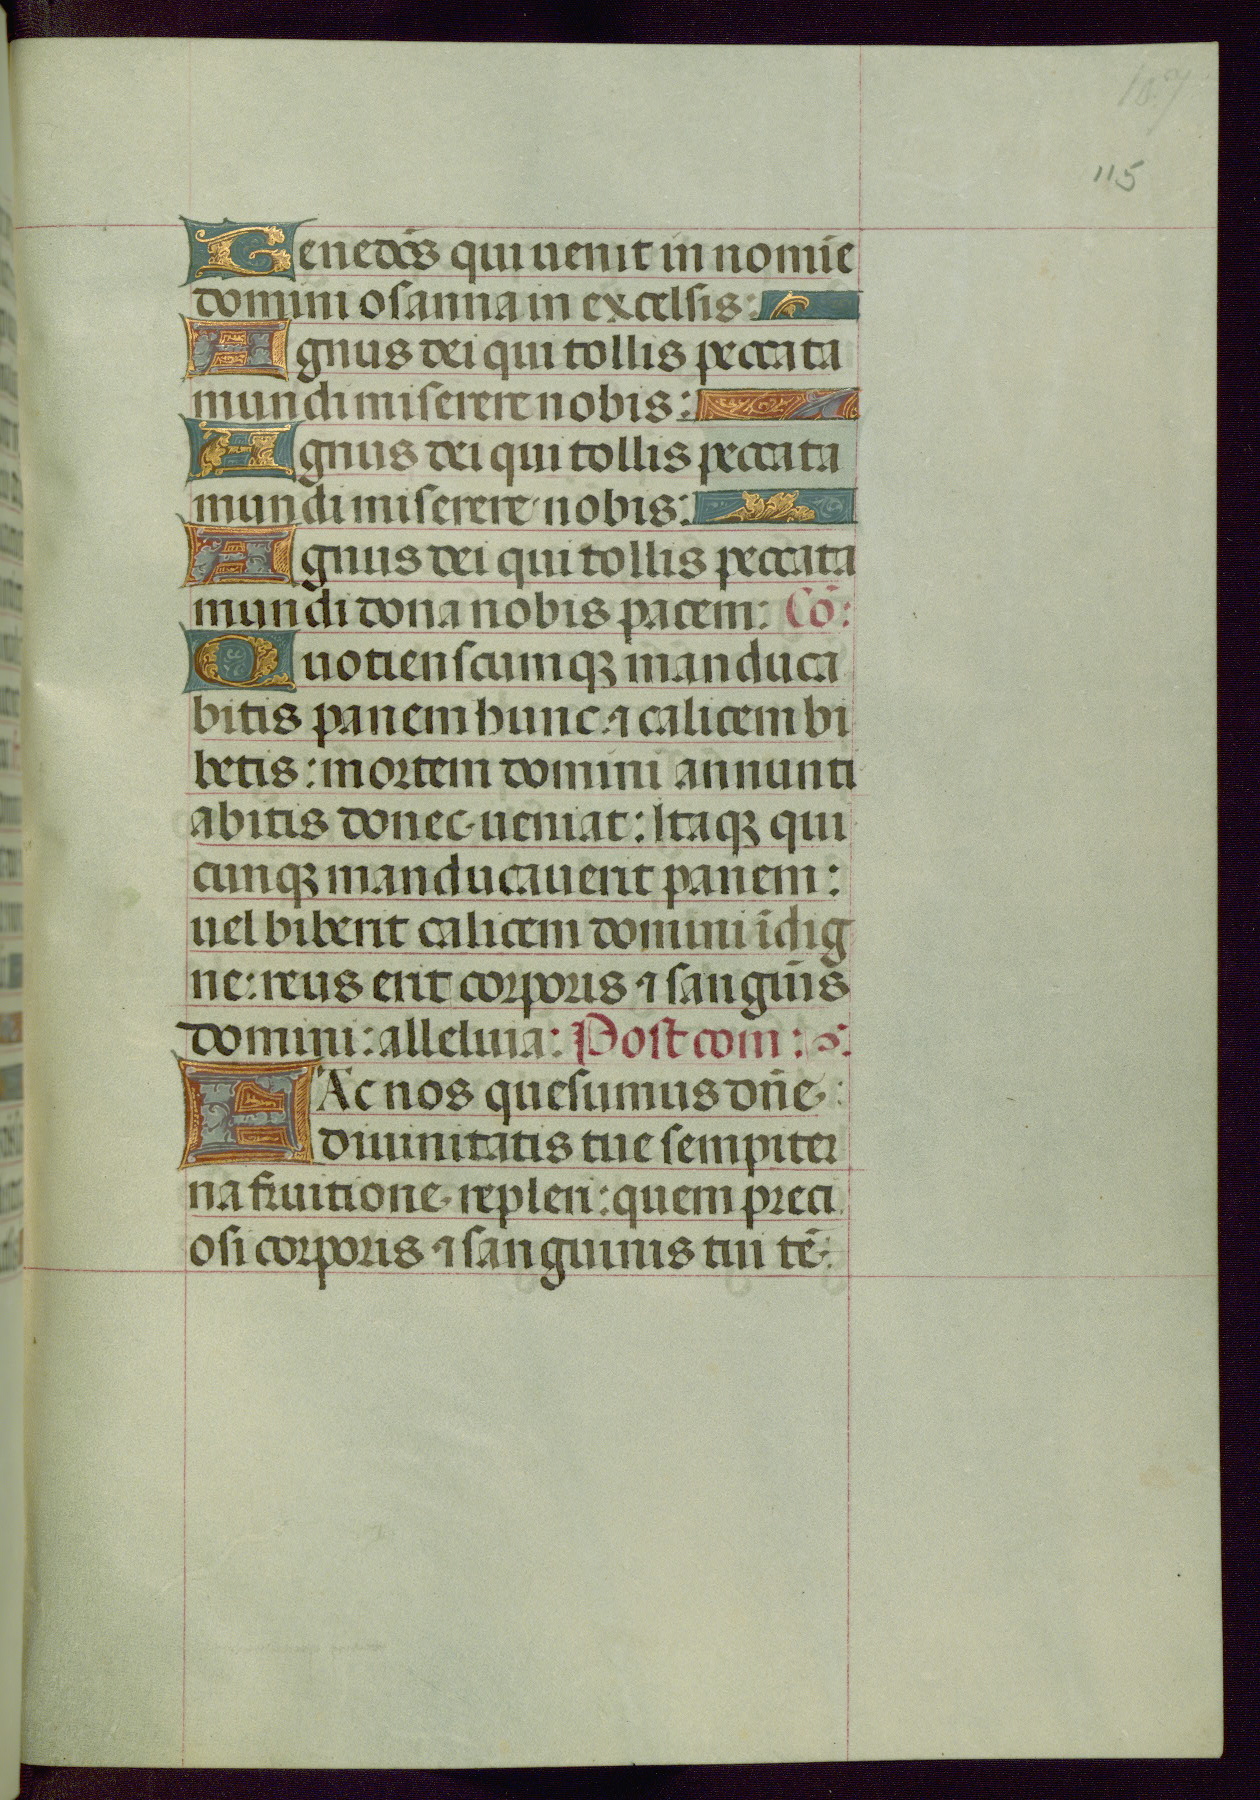 115
Benedc̄s qui uenit in nomīe
domini osanna in excelsis:
Agnus dei qui tollis peccata
mundi miserere nobis:
Agnus dei qui tollis peccata
mundi miserere nobis:
Agnus dei qui tollis peccata
mundi dona nobis pacem: Cō:
Quotienscumqꝫ manduca
bitis panem hunc ⁊ calicem bi
betis: mortem domini annunti
abitis donec ueniat: Itaqꝫ qui
cunqꝫ manducauerit panem:
uel biberit calicem domini īdig
ne: reus erit corporis ⁊ sanguīs
domini: alleluia: Postcom: s:
FAc nos quesumus dn̄e:
diuinitatis tue sempiter
na fruitione repleri: quem preci
osi corporis ⁊ sanguinis tui tē